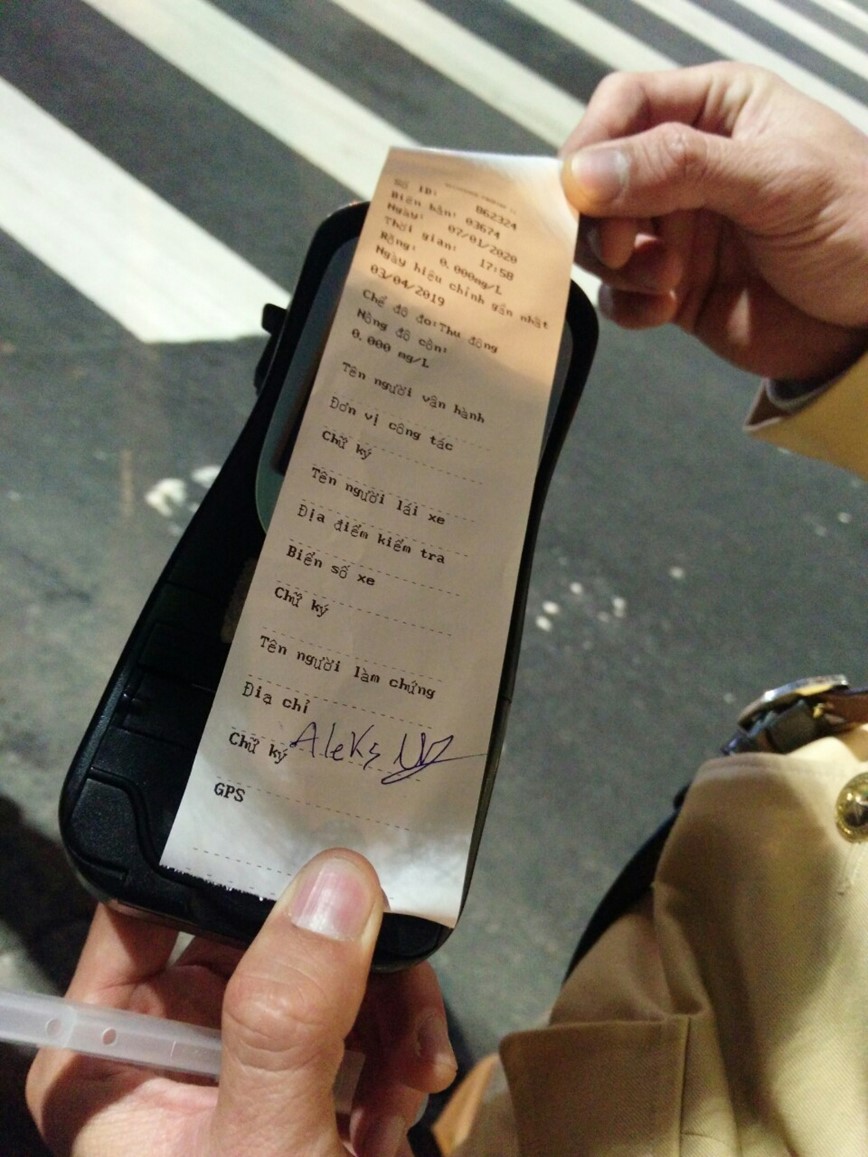 Số ID: 862324
Biên bản: 03674
Ngày: 07/01/2020
Thời gian: 17:58
Rỗng: 0.000mg/L
Ngày hiệu chỉnh gần nhất
03/04/2019
Chế độ đo:Thụ động
Nồng độ cồn:
0.000 mg/L
Tên người vận hành
Đơn vị công tác
Chữ ký
Tên người lái xe
Địa điểm kiểm tra
Biển số xe
Chữ ký
Tên người làm chứng
Địa chỉ
Chữ ký Aleks
GPS